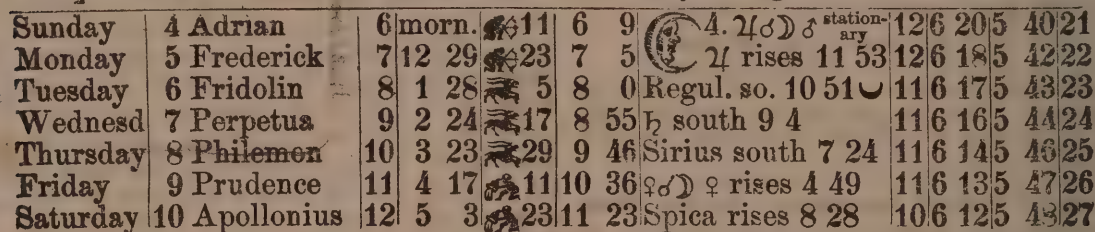 Sunday 4 Adrian 6 morn. 11 6 9 4. ♃☌☽ ♂ station-ary 12 6 20 5 40 21
Monday 5 Frederick 7 12 29 23 7 5 ♃ rises 11 53 12 6 18 5 42 22
Tuesday 6 Fridolin 8 1 28 5 8 0 Regul. so. 10 51 11 6 17 5 43 23
Wednesd 7 Perpetua 9 2 24 17 8 55 ♄ south 9 4 11 6 16 5 44 24
Thursday 8 Philemon 10 3 23 29 9 46 Sirius south 7 24 11 6 14 5 46 25
Friday 9 Prudence 11 4 17 11 10 36 ♀☌☽ ♀ rises 4 49 11 6 13 5 47 26
Saturday 10 Apollonius 12 5 3 23 11 23 Spica rises 8 28 10 6 12 5 48 27